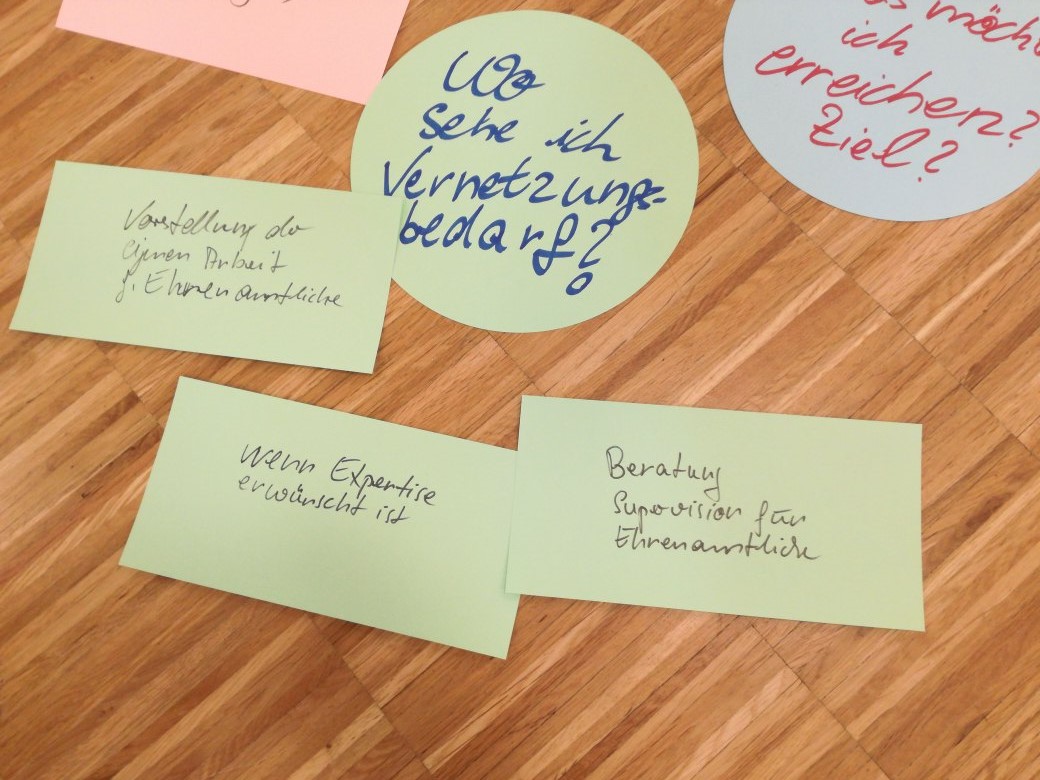 Wo
sehe ich
Vernetzungs-
bedarf?
möcht
ich
erreichen?
Ziel?
Vorstellung der
eigenen Arbeit
f. Ehrenamtliche
Wenn Expertise
erwünscht ist
Beratung
Supervision für
Ehrenamtliche